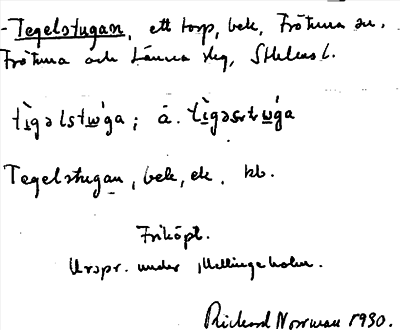 - Tegelstugan, ett torp, bek, Frötuna sn.
Frötuna och Länna skg, Sthlms l.
tìgəlstẁga; ä. tìgəstẁga
Tegelstugan, bek, ek. kb.
Friköpt.
Urspr. under Mellingeholm.
Rickard Norrman 1930.